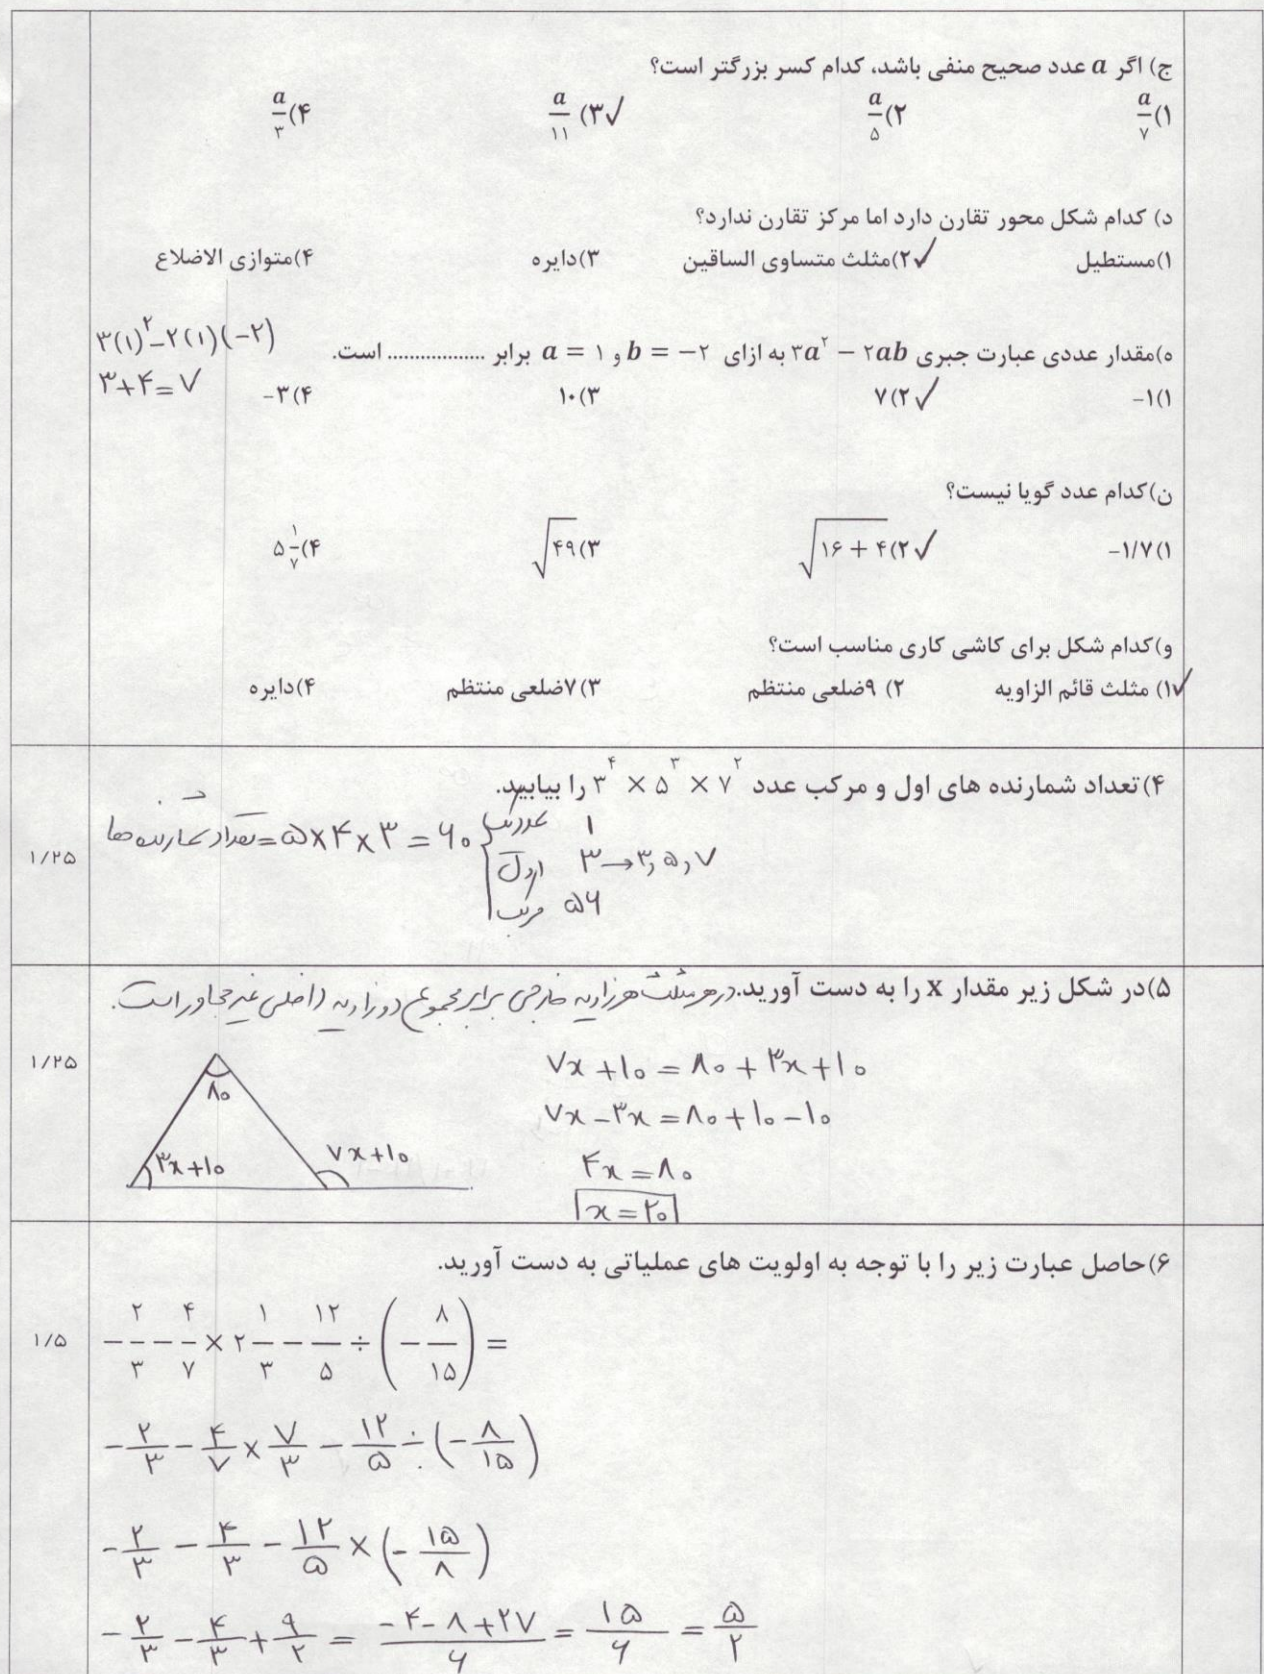 ج) اگر a عدد صحیح منفی باشد، کدام کسر بزرگتر است؟
۱) a/۷ ۲) a/۵ ۳) a/۱۱ ✓ ۴) a/۳
د) کدام شکل محور تقارن دارد اما مرکز تقارن ندارد؟
۱)مستطیل ۲)مثلث متساوی الساقین ✓ ۳)دایره ۴)متوازی الاضلاع
ه)مقدار عددی عبارت جبری ۳a² − ۲ab به ازای b = −۲ و a = ۱ برابر .................. است.
۳(۱)²−۲(۱)(−۲)
۳+۴=۷
۱) −۱ ۲) ۷ ✓ ۳) ۱۰ ۴) −۳
ن)کدام عدد گویا نیست؟
۱) −۱/۷ ۲) √(۱۶ + ۴) ✓ ۳) √۴۹ ۴) ۵ ۱/۷
و)کدام شکل برای کاشی کاری مناسب است؟
۱) مثلث قائم الزاویه ✓ ۲) ۹ضلعی منتظم ۳) ۷ضلعی منتظم ۴)دایره
۴)تعداد شمارنده های اول و مرکب عدد ۳⁴ × ۵³ × ۷² را بیابید.
۱/۲۵
تعداد شمارنده ها = ۵×۴×۳ = ۶۰
۱ عدد یک
۳ اول → ۳, ۵, ۷
۵۶ مرکب
۵)در شکل زیر مقدار x را به دست آورید. در هر مثلث هر زاویه خارجی برابر مجموع دو زاویه داخلی غیر مجاور است.
۱/۲۵
۷x + ۱۰ = ۸۰ + ۳x + ۱۰
۷x − ۳x = ۸۰ + ۱۰ − ۱۰
۴x = ۸۰
x = ۲۰
۸۰
۳x+۱۰
۷x+۱۰
۶)حاصل عبارت زیر را با توجه به اولویت های عملیاتی به دست آورید.
۱/۵
−۲/۳ − ۴/۷ × ۲ ۱/۳ − ۱۲/۵ ÷ (−۸/۱۵) =
−۲/۳ − ۴/۷ × ۷/۳ − ۱۲/۵ ÷ (−۸/۱۵)
−۲/۳ − ۴/۳ − ۱۲/۵ × (−۱۵/۸)
−۲/۳ − ۴/۳ + ۹/۲ = (−۴−۸+۲۷)/۶ = ۱۵/۶ = ۵/۲